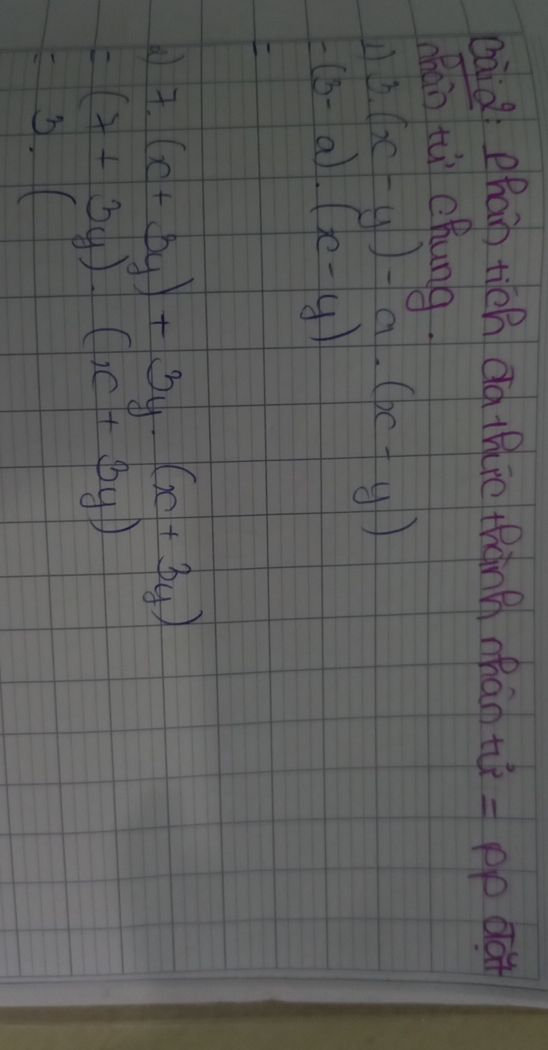 Bài 2: Phân tích đa thức thành nhân tử = pp đặt
nhân tử chung.
1) 3.(x - y) - a.(x - y)
= (3 - a).(x - y)
=
2) 7.(x + 3y) + 3y.(x + 3y)
= (7 + 3y).(x + 3y)
= 3.(